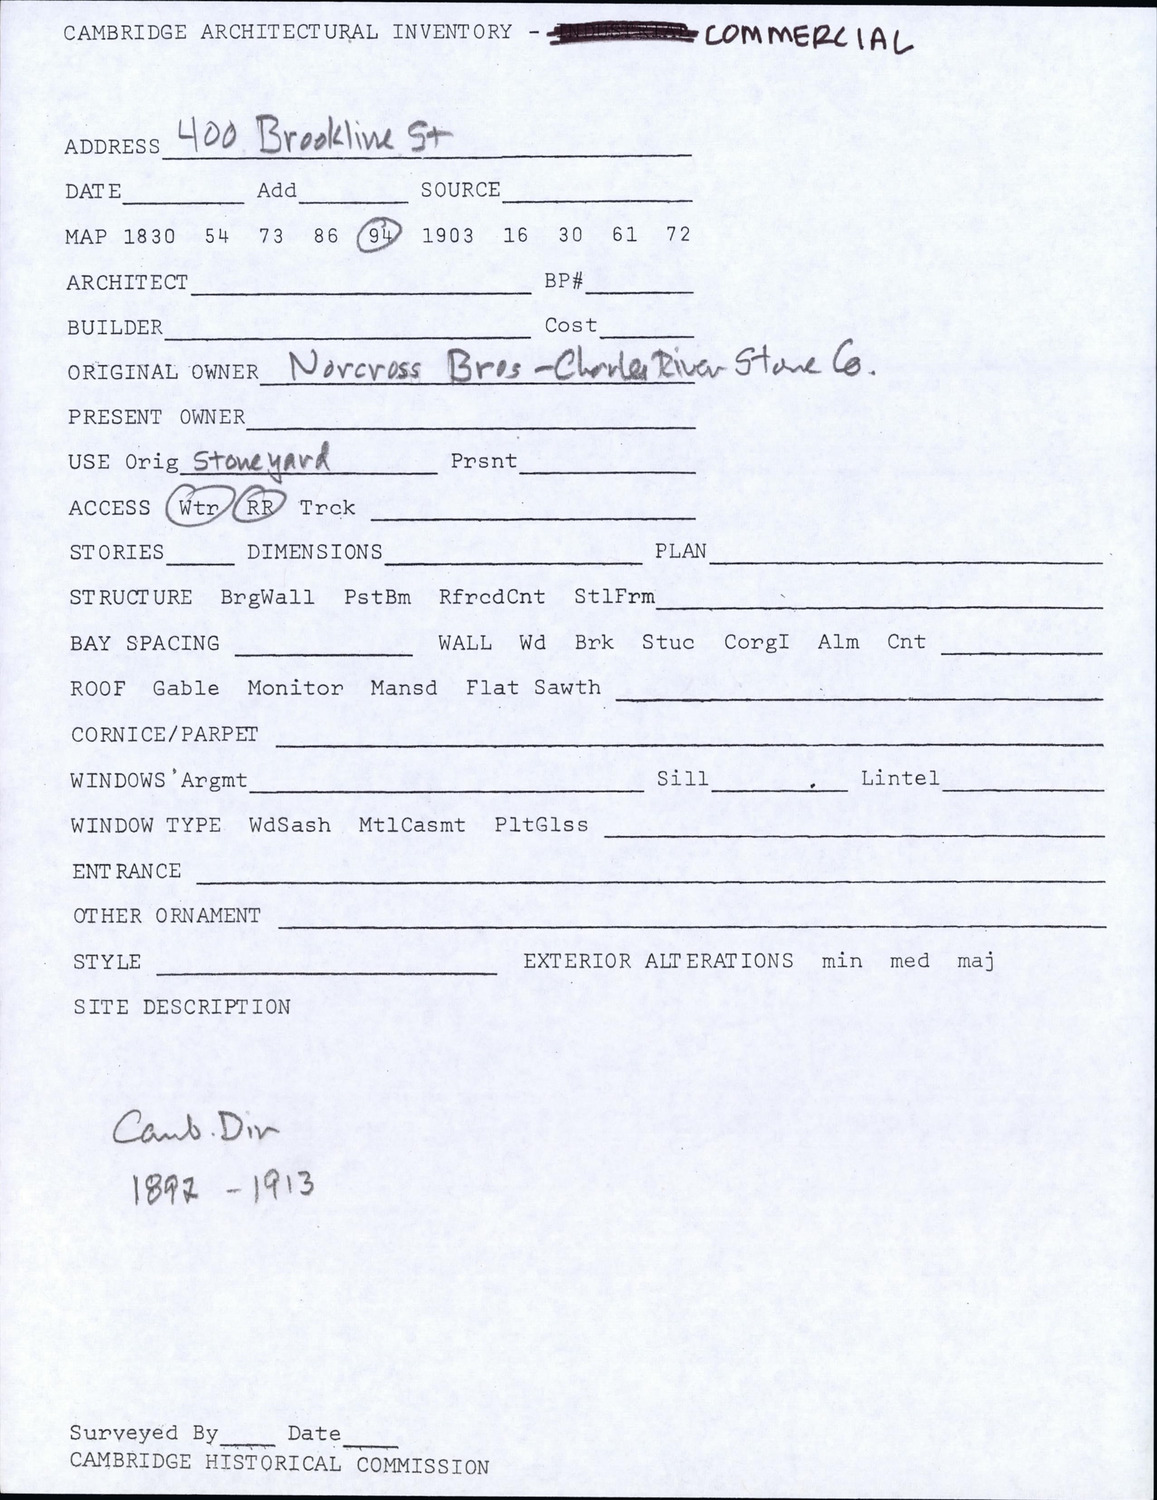 CAMBRIDGE ARCHITECTURAL INVENTORY - COMMERCIAL
ADDRESS 400 Brookline St
DATE Add SOURCE
MAP 1830 54 73 86 94 1903 16 30 61 72
ARCHITECT BP#
BUILDER Cost
ORIGINAL OWNER Norcross Bros - Charles River Stone Co.
PRESENT OWNER
USE Orig Stoneyard Prsnt
ACCESS Wtr RR Trck
STORIES DIMENSIONS PLAN
STRUCTURE BrgWall PstBm RfrcdCnt StlFrm
BAY SPACING WALL Wd Brk Stuc CorgI Alm Cnt
ROOF Gable Monitor Mansd Flat Sawth
CORNICE/PARPET
WINDOWS Argmt Sill Lintel
WINDOW TYPE WdSash MtlCasmt PltGlss
ENTRANCE
OTHER ORNAMENT
STYLE EXTERIOR ALTERATIONS min med maj
SITE DESCRIPTION
Camb. Dir
1892 - 1913
Surveyed By Date
CAMBRIDGE HISTORICAL COMMISSION